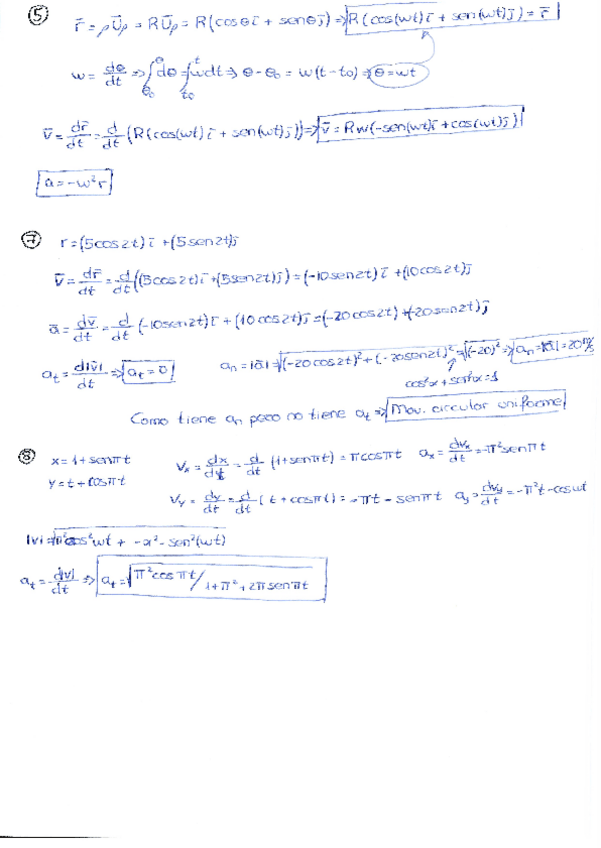 ⑤ r̄ = ρŪρ = RŪρ = R(cosθī + senθj̄) ⇒ R(cos(wt)ī + sen(wt)j̄) = r̄
w = dθ/dt ⇒ ∫θ₀^θ dθ = ∫t₀^t wdt ⇒ θ-θ₀ = w(t-t₀) ⇒ θ=wt
v̄ = dr̄/dt = d/dt (R(cos(wt)ī + sen(wt)j̄)) ⇒ v̄ = Rw(-sen(wt)ī + cos(wt)j̄)
ā = -w²r̄
⑦ r = (5cos2t)ī + (5sen2t)j̄
v̄ = dr̄/dt = d/dt ((5cos2t)ī + (5sen2t)j̄) = (-10sen2t)ī + (10cos2t)j̄
ā = dv̄/dt = d/dt (-10sen2t)ī + (10cos2t)j̄ = (-20cos2t) + (-20sen2t)j̄
at = d|v̄|/dt ⇒ at = 0 an = |ā| = √(-20cos2t)² + (-20sen2t)² = √(-20)² ⇒ an = |ā| = 20
cos²x + sen²x = 1
Como tiene an pero no tiene at ⇒ Mov. circular uniforme
⑧ x = 1 + senπt Vx = dx/dt = d/dt (1 + senπt) = πcosπt ax = dVx/dt = -π²senπt
y = t + cosπt Vy = dy/dt = d/dt (t + cosπt) = -πt - senπt ay = dVy/dt = -π²t - coswt
|v| = √π²cos²wt + -π² - sen²(wt)
at = d|v|/dt ⇒ at = √π²cosπt/1+π²+2πsenπt